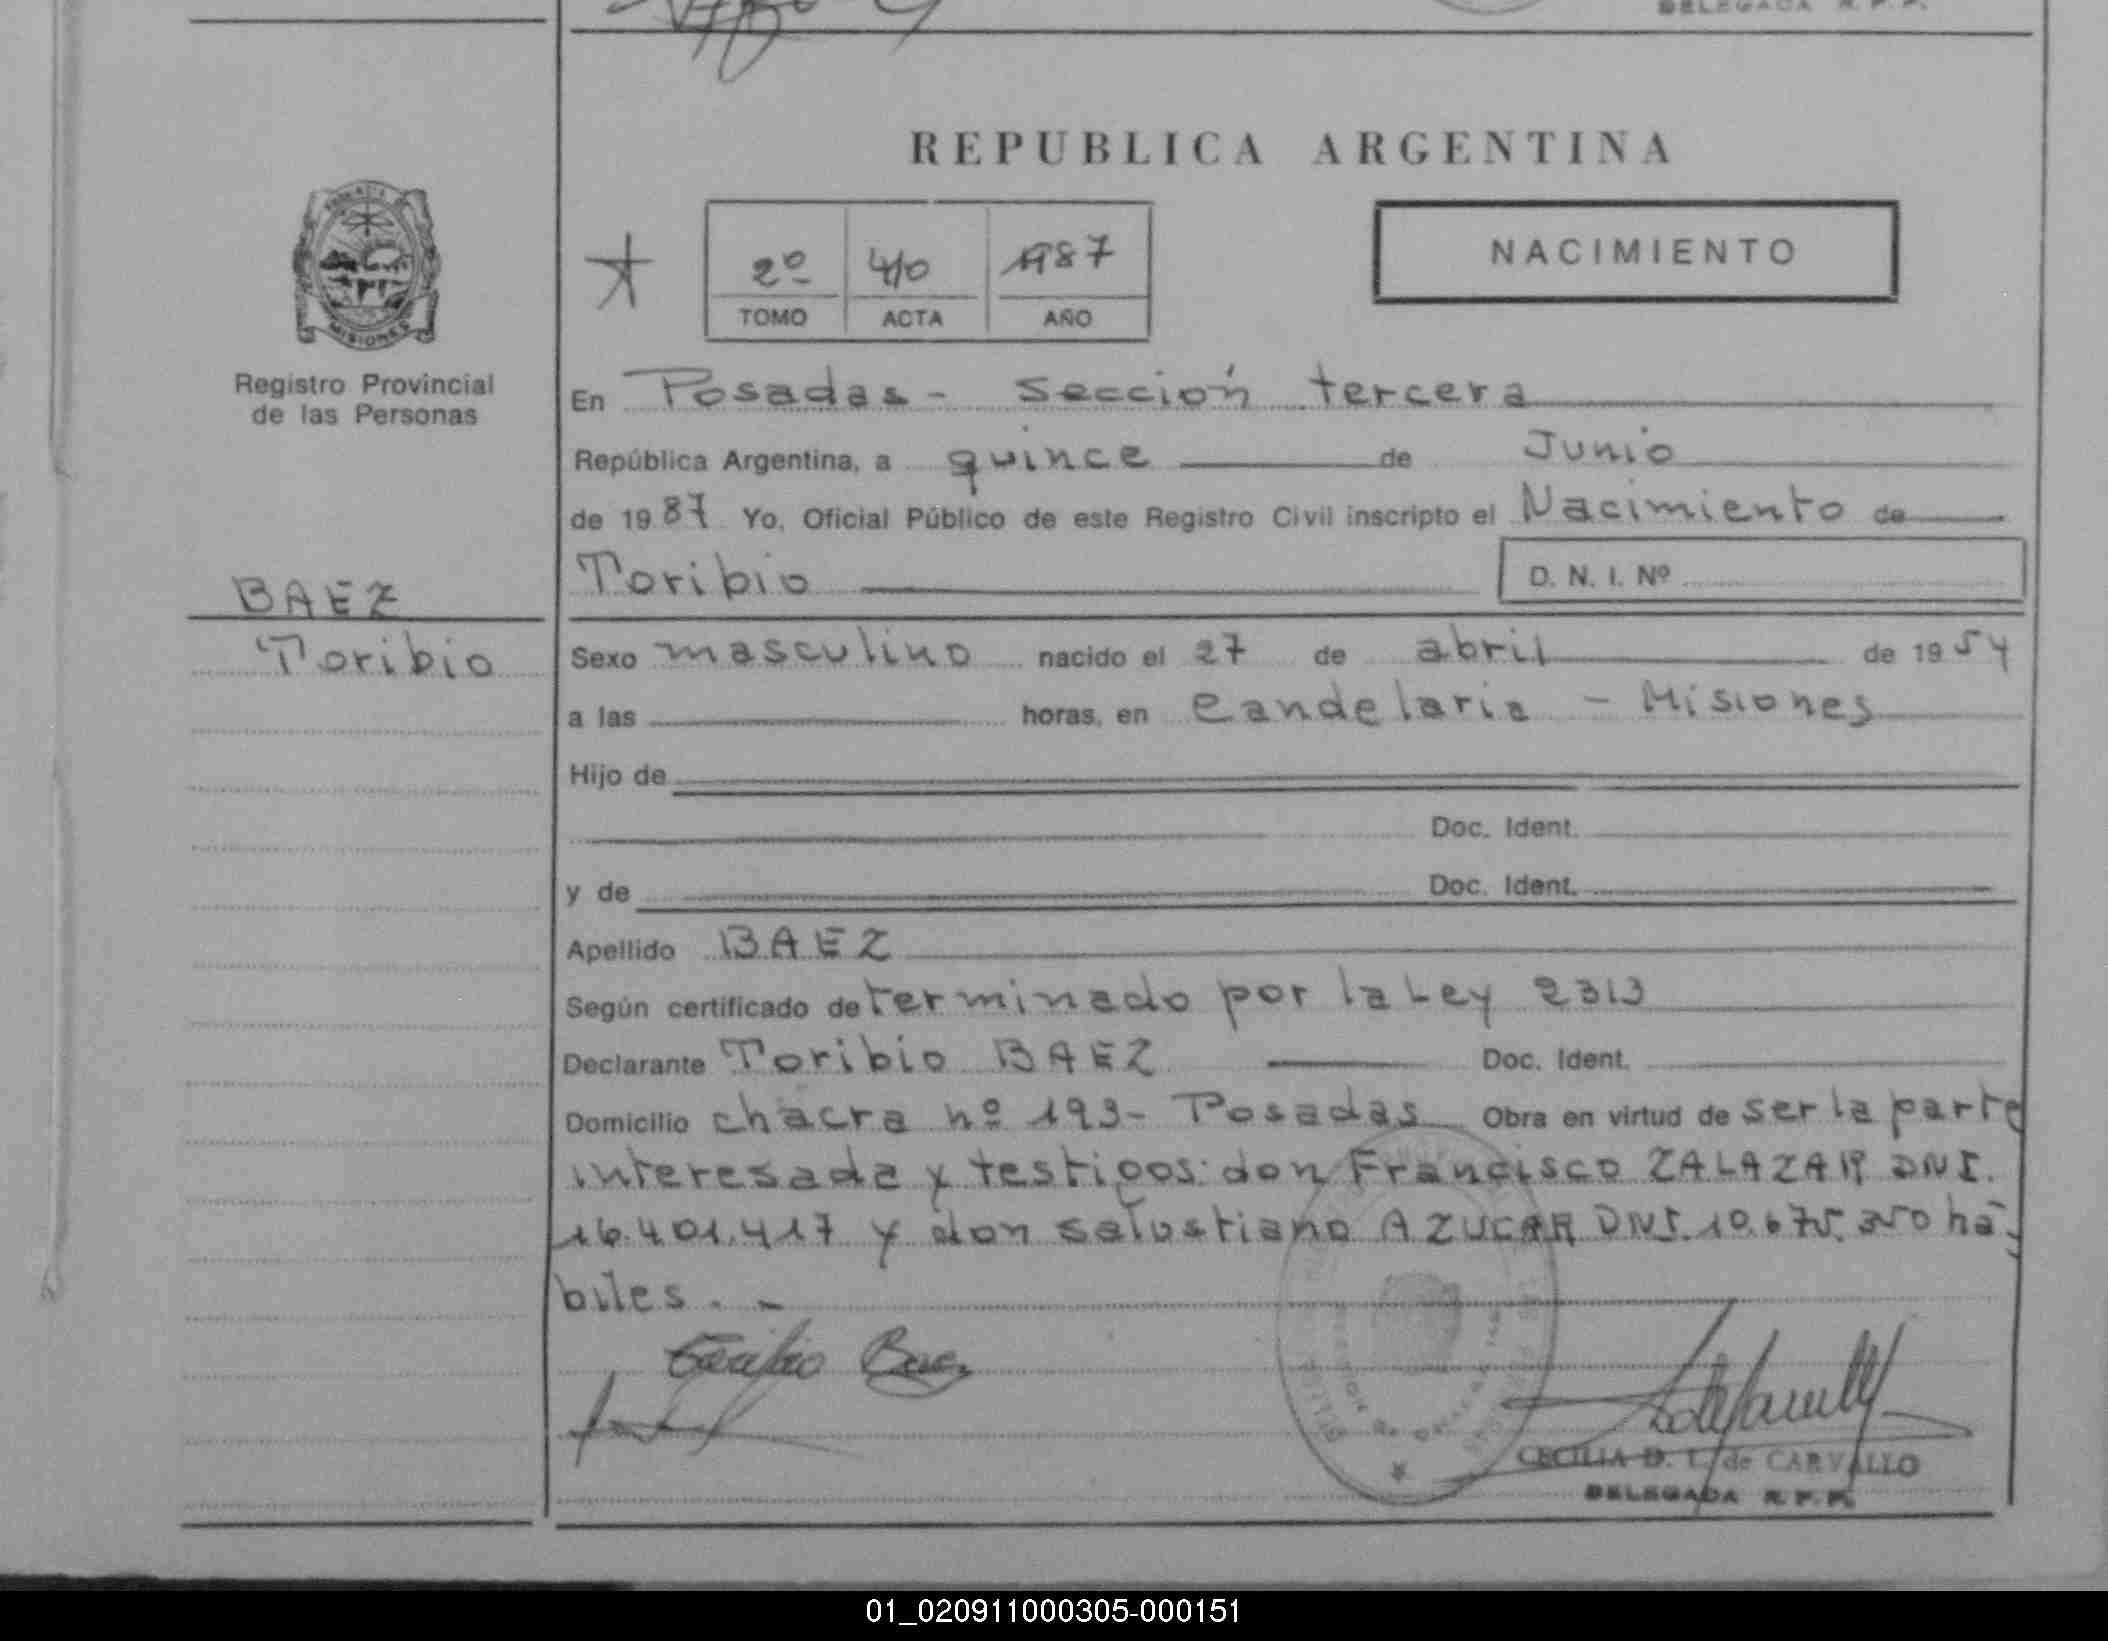 DELEGADA R.P.P.
REPUBLICA ARGENTINA
NACIMIENTO
2º 410 1987
TOMO ACTA AÑO
MISIONES
Registro Provincial
de las Personas
BAEZ
Toribio
En Posadas - sección tercera
República Argentina, a quince de Junio
de 1987 Yo, Oficial Público de este Registro Civil inscripto el Nacimiento de
Toribio D. N. I. Nº
Sexo masculino nacido el 27 de abril de 1954
a las horas, en Candelaria - Misiones
Hijo de
Doc. Ident.
y de Doc. Ident.
Apellido BAEZ
Según certificado determinado por la Ley 2313
Declarante Toribio BAEZ Doc. Ident.
Domicilio chacra nº 193 - Posadas Obra en virtud de ser la parte
interesada y testigos: don Francisco ZALAZAR DNI.
16.401.417 y don salustiano AZUCAR DNI. 10.675.350 há-
biles. -
Toribio Baez
CECILIA D. L. de CARVALLO
DELEGADA R.P.P.
01_020911000305-000151